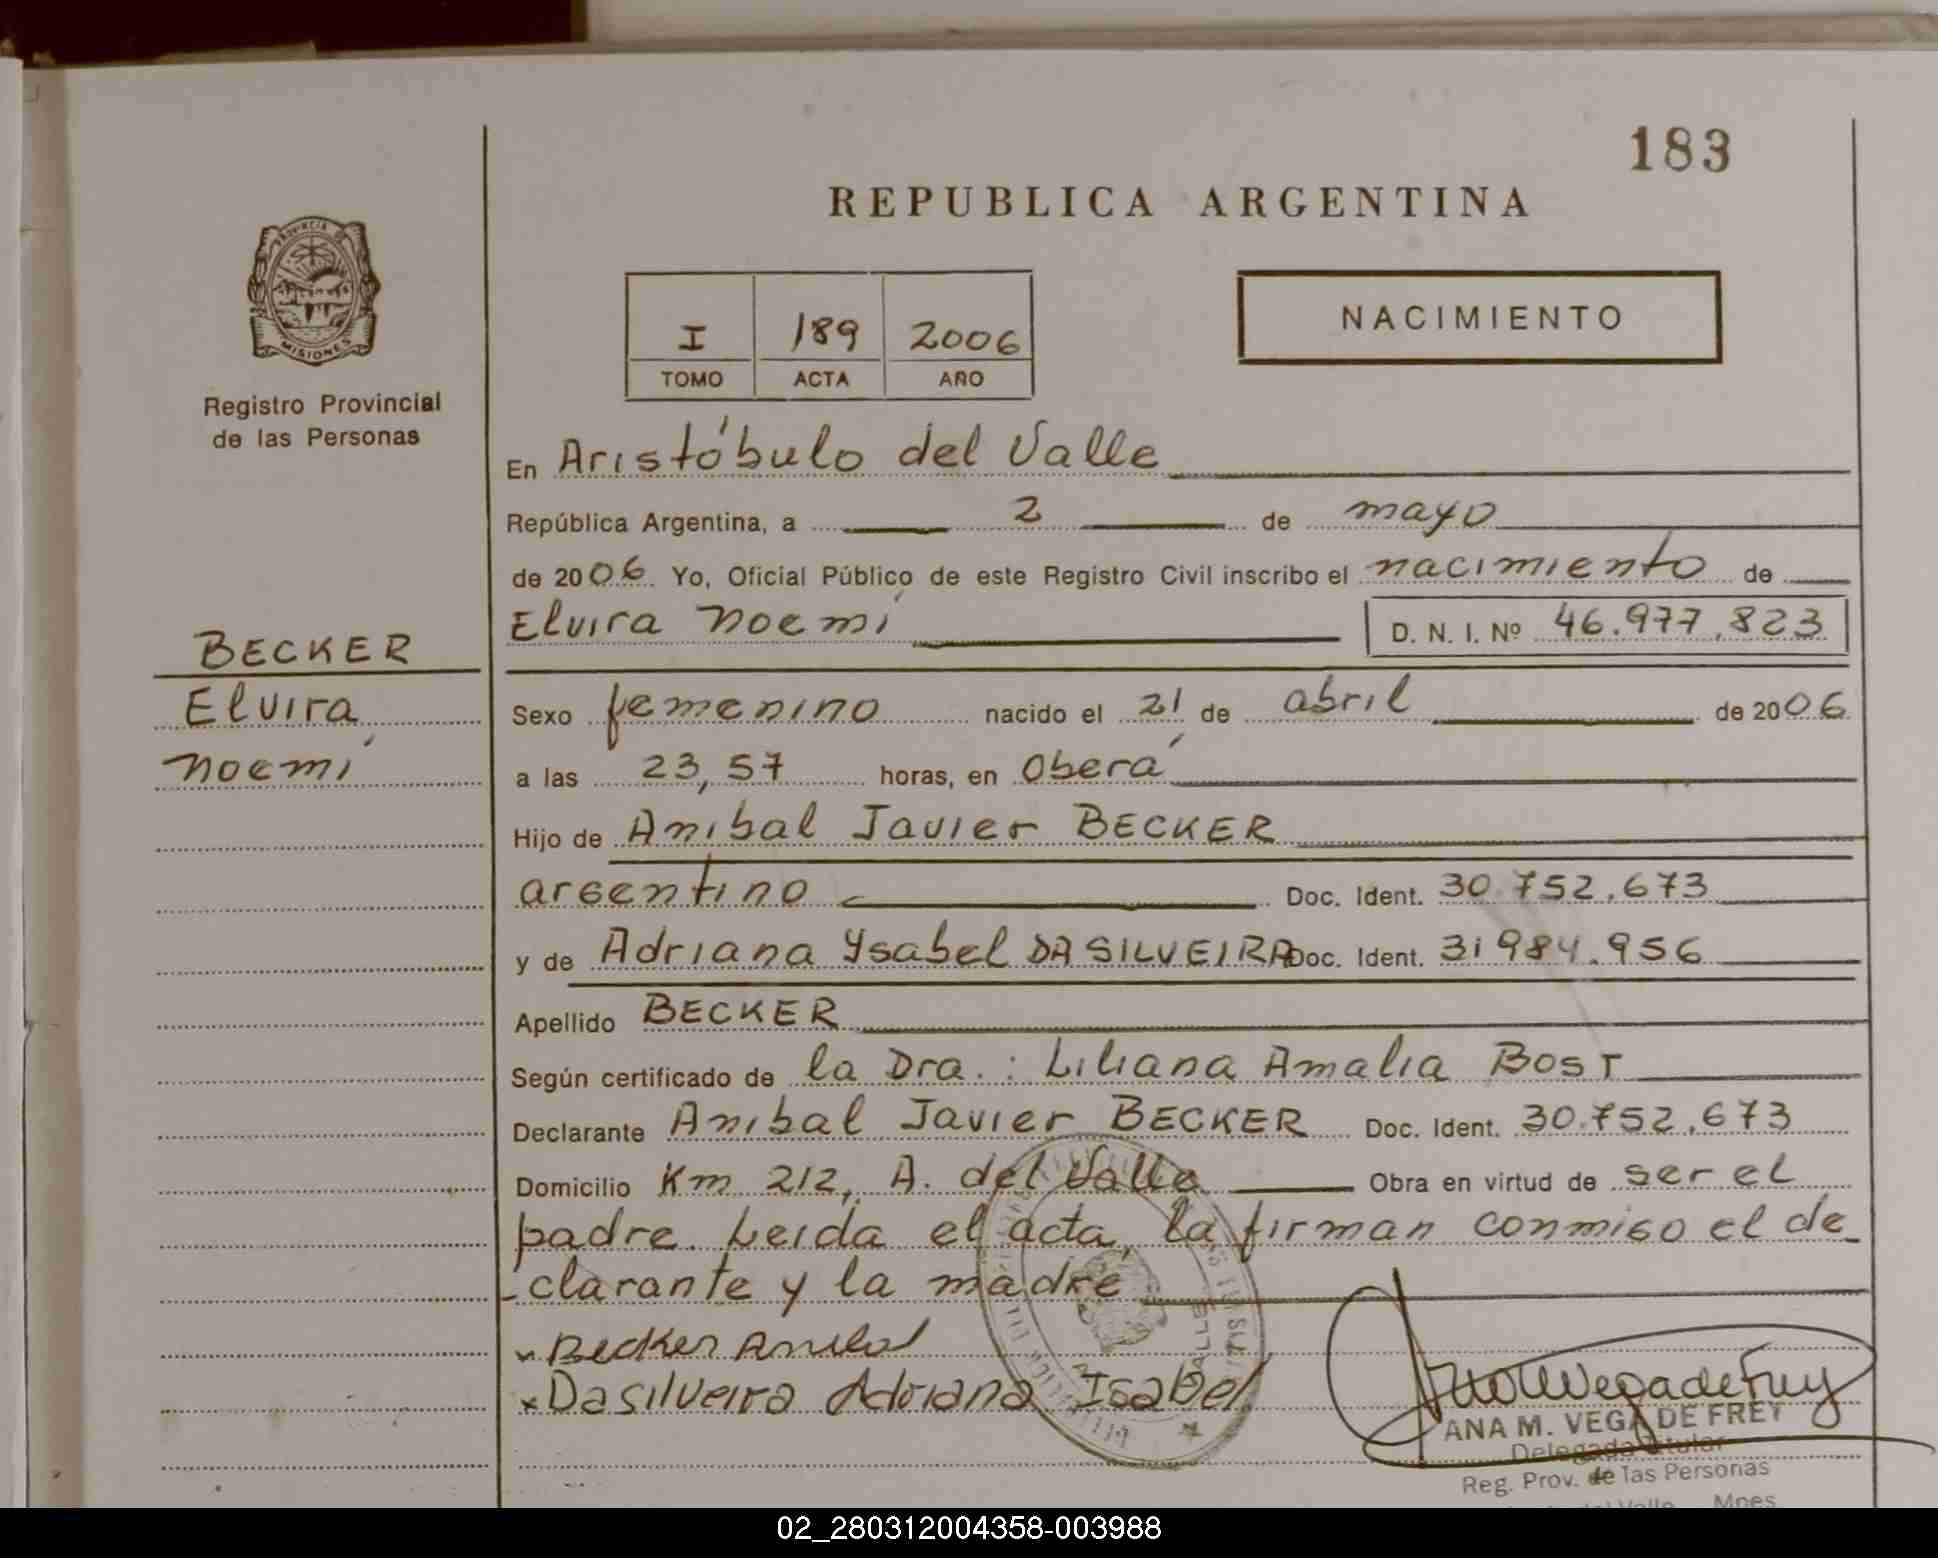 183
REPUBLICA ARGENTINA
PROVINCIA DE
MISIONES
Registro Provincial
de las Personas
I 189 2006
TOMO ACTA AÑO
NACIMIENTO
En Aristóbulo del Valle
República Argentina, a 2 de mayo
de 2006 Yo, Oficial Público de este Registro Civil inscribo el nacimiento de
Elvira Noemí D. N. I. Nº 46.977.823
BECKER
Elvira
Noemí
Sexo femenino nacido el 21 de abril de 2006
a las 23,57 horas, en Oberá
Hijo de Anibal Javier BECKER
argentino Doc. Ident. 30.752.673
y de Adriana Ysabel DA SILVEIRA Doc. Ident. 31984.956
Apellido BECKER
Según certificado de la Dra.: Liliana Amalia Bost
Declarante Anibal Javier BECKER Doc. Ident. 30.752.673
Domicilio Km 212, A. del Valle Obra en virtud de ser el
padre. Leida el acta, la firman conmigo el de_
-clarante y la madre
x Becker Anibal
x Dasilveira Adriana Isabel
ANA M. VEGA DE FREY
Delegada Titular
Reg. Prov. de las Personas
del Valle Mnes
02_280312004358-003988